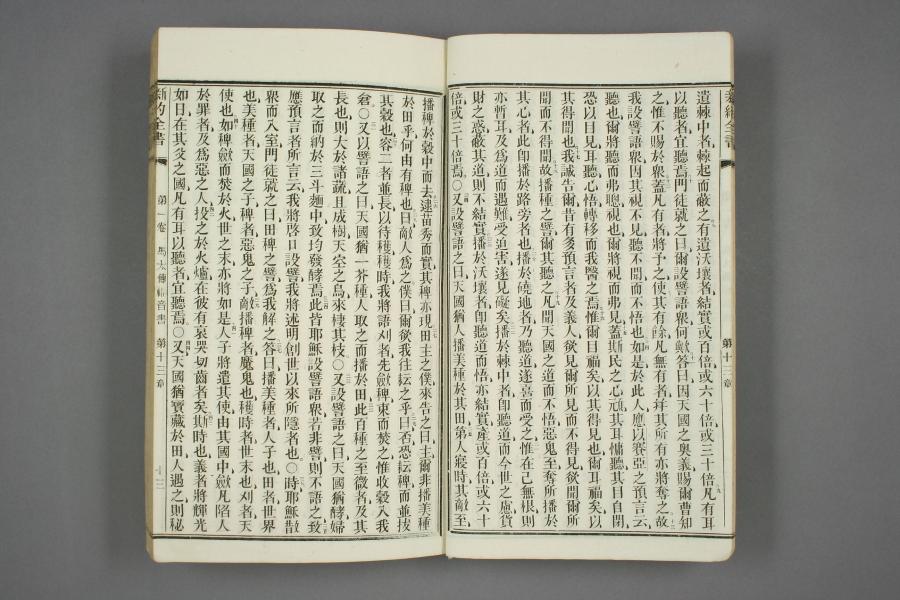 遺棘中者棘起而蔽之有遺沃壤者結實或百倍或六十倍或三十倍凡有耳
以聽者宜聽焉門徒就之曰爾設譬語眾何歟答曰因天國之奧義賜爾曹知
之惟不賜於眾蓋凡有者將予之使其有餘凡無有者幷其所有亦將奪之故
我設譬語眾因其視不見聽不聞而不悟也如是於此人應以賽亞之預言云
聽也爾將聽而弗聰視也爾將視而弗見蓋斯民之心頑其耳慵聽其目自閉
恐以目見耳聽心悟轉移而我醫之焉惟爾目福矣以其得見也爾耳福矣以
其得聞也我誠告爾昔有多預言者及義人欲見爾所見而不得見欲聞爾所
聞而不得聞故播種之譬爾其聽之凡聞天國之道而不悟惡鬼至奪所播於
其心者此即播於路旁者也播於磽地者乃聽道遂喜而受之惟在己無根則
亦暫耳及為道而遇難受迫害遂見礙矣播於棘中者即聽道而今世之慮貨
財之惑蔽其道則不結實播於沃壤者即聽道而悟亦結實產或百倍或六十
倍或三十倍焉○又設譬語之曰天國猶人播美種於其田第人寢時其敵至
播稗於穀中而去逮苗秀而實其稗亦現田主之僕來告之曰主爾非播美種
於田乎何由有稗也曰敵人為之僕曰爾欲我往耘之乎曰否恐耘稗而並拔
其穀也容二者並長以待穫穫時我將語刈者先斂稗束而焚之惟收穀入我
倉○又以譬語之曰天國猶一芥種人取之而播於田此百種之至微者及其
長也則大於諸蔬且成樹天空之鳥來棲其枝○又設譬語之曰天國猶酵婦
取之而納於三斗麵中致均發酵焉此皆耶穌設譬語眾若非譬則不語之致
應預言者所言云我將啓口設譬我將述明創世以來所隱者也○時耶穌散
眾而入室門徒就之曰田稗之譬為我解之答曰播美種者人子也田者世界
也美種者天國之子稗者惡鬼之子敵播稗者魔鬼也穫時者世末也刈者天
使也如稗斂而焚於火世之末亦將如是人子將遣其使由其國中斂凡陷人
於罪者及為惡之人投之於火爐在彼有哀哭切齒者矣斯時也義者將輝光
如日在其父之國凡有耳以聽者宜聽焉○又天國猶寶藏於田人遇之則秘
新約全書 第一卷 馬太傳福音書 第十三章 十三